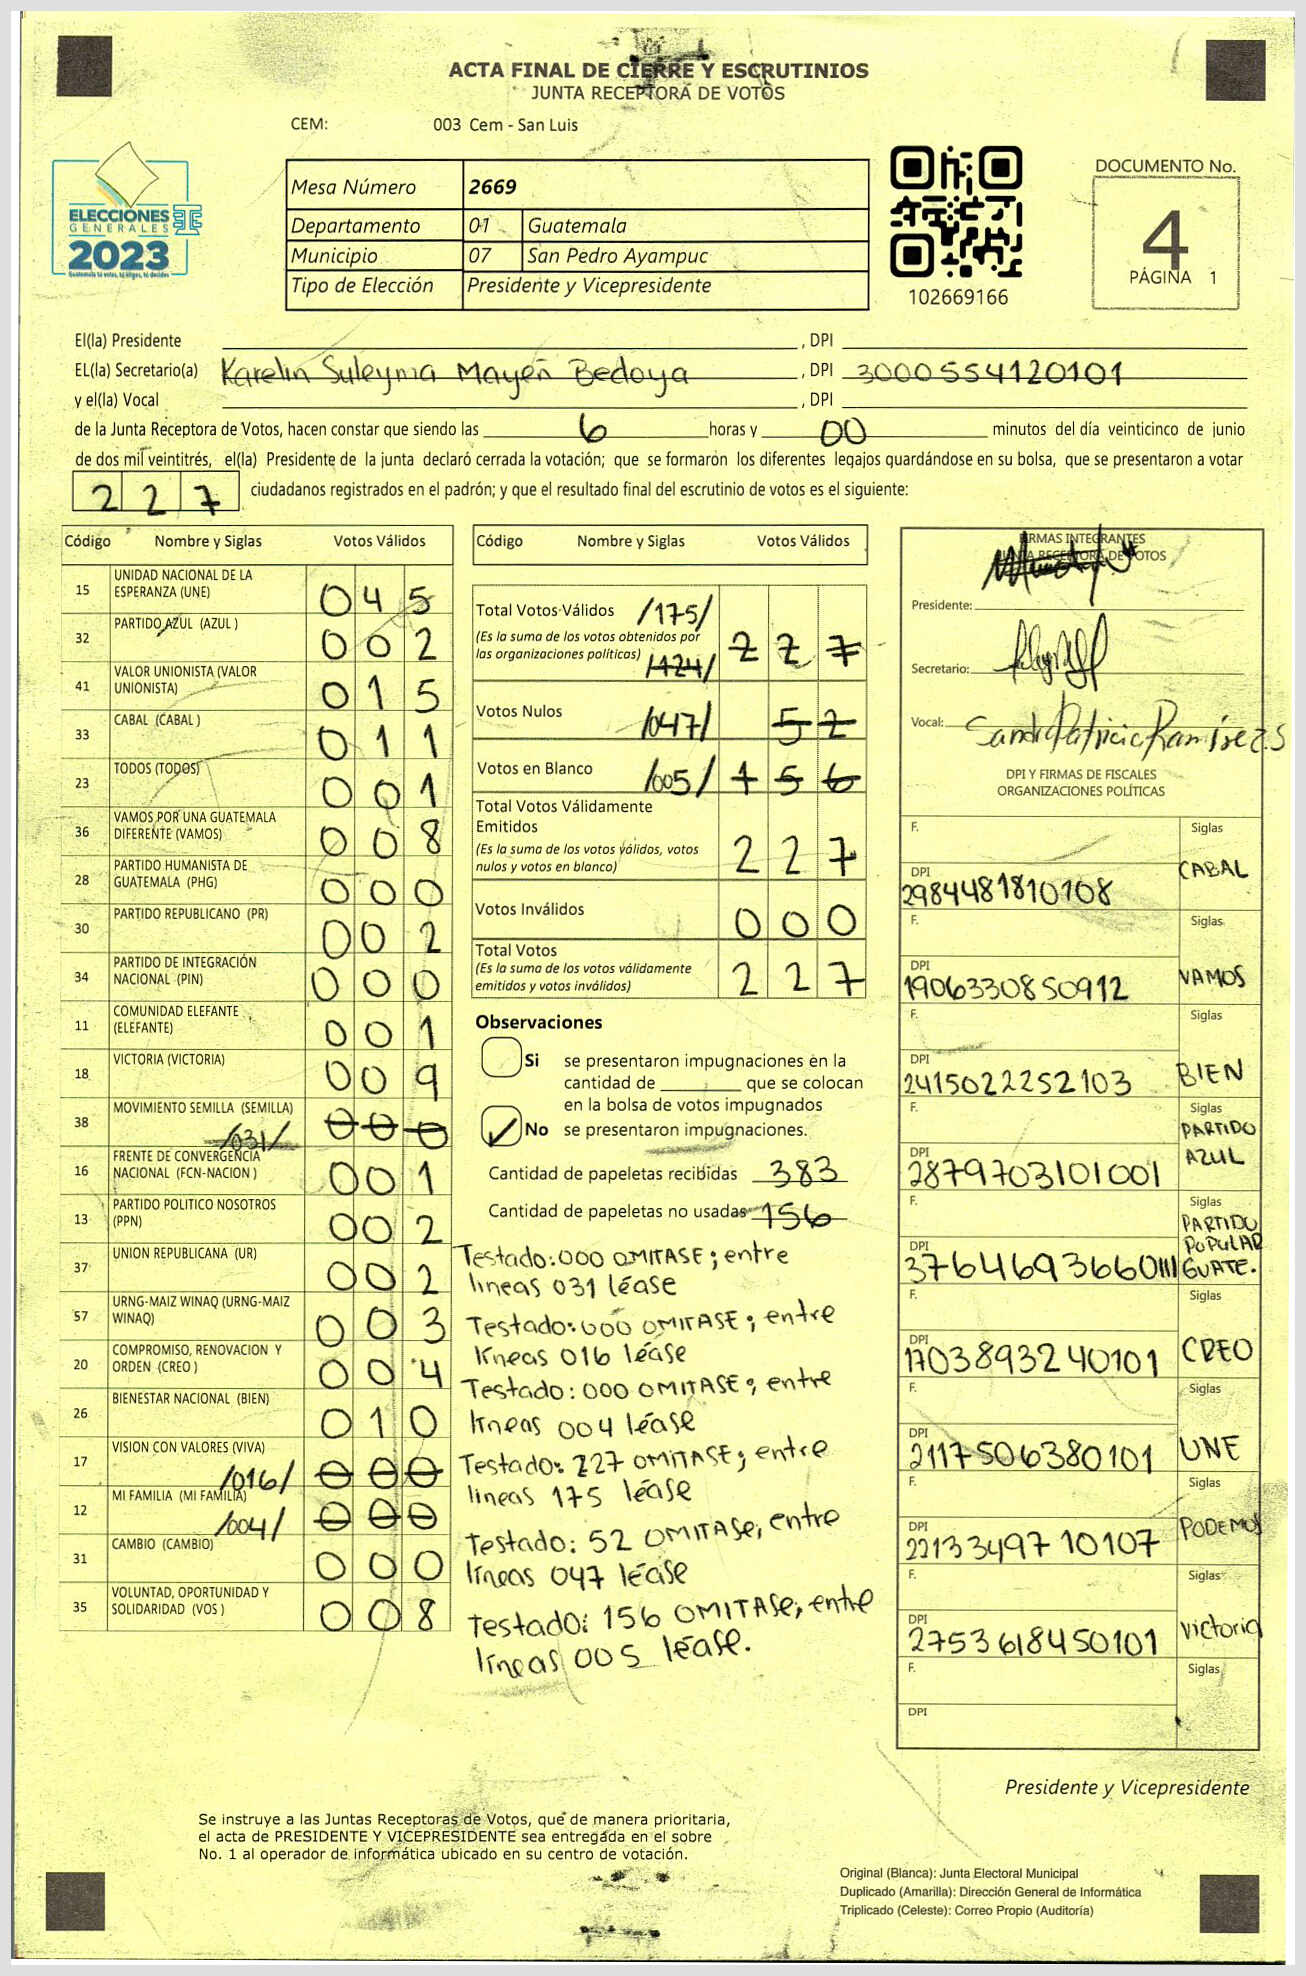 ACTA FINAL DE CIERRE Y ESCRUTINIOS
JUNTA RECEPTORA DE VOTOS
CEM: 003 Cem - San Luis
ELECCIONES
GENERALES
2023
Guatemala tú votas, tú eliges, tú decides
Mesa Número 2669
Departamento 01 Guatemala
Municipio 07 San Pedro Ayampuc
Tipo de Elección Presidente y Vicepresidente
102669166
DOCUMENTO No.
4
PÁGINA 1
El(la) Presidente , DPI
EL(la) Secretario(a) Karelin Suleyma Mayén Bedoya , DPI 3000554120101
y el(la) Vocal , DPI
de la Junta Receptora de Votos, hacen constar que siendo las 6 horas y 00 minutos del día veinticinco de junio
de dos mil veintitrés, el(la) Presidente de la junta declaró cerrada la votación; que se formaron los diferentes legajos guardándose en su bolsa, que se presentaron a votar
227 ciudadanos registrados en el padrón; y que el resultado final del escrutinio de votos es el siguiente:
Código Nombre y Siglas Votos Válidos
15 UNIDAD NACIONAL DE LA ESPERANZA (UNE) 045
32 PARTIDO AZUL (AZUL ) 002
41 VALOR UNIONISTA (VALOR UNIONISTA) 015
33 CABAL (CABAL ) 011
23 TODOS (TODOS) 001
36 VAMOS POR UNA GUATEMALA DIFERENTE (VAMOS) 008
28 PARTIDO HUMANISTA DE GUATEMALA (PHG) 000
30 PARTIDO REPUBLICANO (PR) 002
34 PARTIDO DE INTEGRACIÓN NACIONAL (PIN) 000
11 COMUNIDAD ELEFANTE (ELEFANTE) 001
18 VICTORIA (VICTORIA) 009
38 MOVIMIENTO SEMILLA (SEMILLA) /031/ 000
16 FRENTE DE CONVERGENCIA NACIONAL (FCN-NACION ) 001
13 PARTIDO POLITICO NOSOTROS (PPN) 002
37 UNION REPUBLICANA (UR) 002
57 URNG-MAIZ WINAQ (URNG-MAIZ WINAQ) 003
20 COMPROMISO, RENOVACION Y ORDEN (CREO ) 004
26 BIENESTAR NACIONAL (BIEN) 010
17 VISION CON VALORES (VIVA) /016/ 000
12 MI FAMILIA (MI FAMILIA) /004/ 000
31 CAMBIO (CAMBIO) 000
35 VOLUNTAD, OPORTUNIDAD Y SOLIDARIDAD (VOS ) 008
Código Nombre y Siglas Votos Válidos
Total Votos Válidos /175/
(Es la suma de los votos obtenidos por
las organizaciones políticas) /124/ 227
Votos Nulos /047/ 52
Votos en Blanco /005/ 156
Total Votos Válidamente
Emitidos
(Es la suma de los votos válidos, votos
nulos y votos en blanco) 227
Votos Inválidos 000
Total Votos
(Es la suma de los votos válidamente
emitidos y votos inválidos) 227
Observaciones
Si se presentaron impugnaciones en la
cantidad de que se colocan
en la bolsa de votos impugnados
No se presentaron impugnaciones.
Cantidad de papeletas recibidas 383
Cantidad de papeletas no usadas 156
Testado: 000 OMITASE; entre
lineas 031 léase
Testado: 000 OMITASE; entre
líneas 016 léase
Testado: 000 OMITASE; entre
lineas 004 léase
Testado: 227 OMITASE; entre
lineas 175 léase
Testado: 52 OMITASE; entre
líneas 047 léase
Testado: 156 OMITASE; entre
líneas 005 léase.
FIRMAS INTEGRANTES
JUNTA RECEPTORA DE VOTOS
Presidente:
Secretario:
Vocal: Sandra Patricia Ramírez S
DPI Y FIRMAS DE FISCALES
ORGANIZACIONES POLÍTICAS
F. Siglas
DPI 2984481810108 CABAL
F. Siglas
DPI 1906330850912 VAMOS
F. Siglas
DPI 2415022252103 BIEN
F. Siglas
DPI 2879703101001 PARTIDO AZUL
F. Siglas
DPI 3764693660111 PARTIDO POPULAR GUATE.
F. Siglas
DPI 1703893240101 CREO
F. Siglas
DPI 2117506380101 UNE
F. Siglas
DPI 2213349710107 PODEMOS
F. Siglas
DPI 2753618450101 Victoria
F. Siglas
DPI
Presidente y Vicepresidente
Se instruye a las Juntas Receptoras de Votos, que de manera prioritaria,
el acta de PRESIDENTE Y VICEPRESIDENTE sea entregada en el sobre
No. 1 al operador de informática ubicado en su centro de votación.
Original (Blanca): Junta Electoral Municipal
Duplicado (Amarilla): Dirección General de Informática
Triplicado (Celeste): Correo Propio (Auditoría)